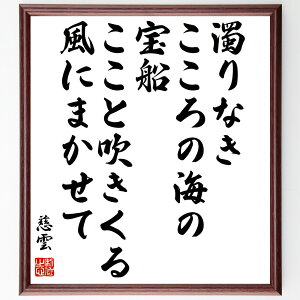 濁りなき
こころの海の
宝船
ここと吹きくる
風にまかせて
慈雲